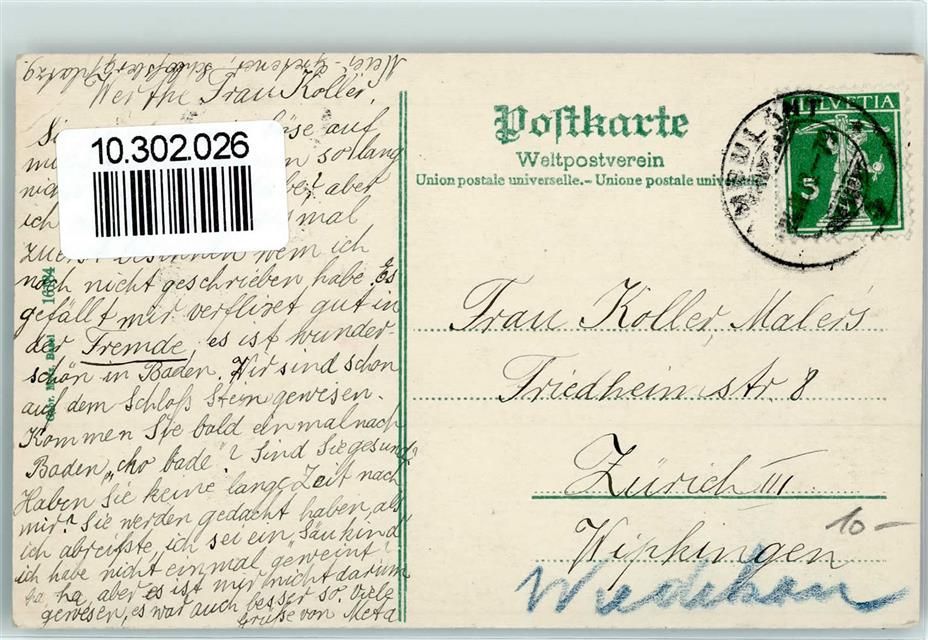 Werthe Frau Koller,
auf
so lang
aber
ich mal
zuerst besinnen wem ich
noch nicht geschrieben habe. Es
gefällt mir verflixt gut in
der Fremde, es ist wunder-
schön in Baden. Wir sind schon
auf dem Schloß Stein gewesen.
Kommen Sie bald einmal nach
Baden „cho bade"? Sind Sie gesund?
Haben Sie keine lange Zeit nach
mir? Sie werden gedacht haben, als
ich abreißte, ich sei ein Säukind
ich habe nicht einmal geweint!
ha, ha, aber es ist mir nicht darum
gewesen, es war auch besser so. Viele
Grüße von Meta
10.302.026
16384
Postkarte
Weltpostverein
Union postale universelle.–Unione postale
HELVETIA
5
Frau Koller, Malers
Friedheimstr. 8
Zürich III
Wipkingen
10-
Wiedikon